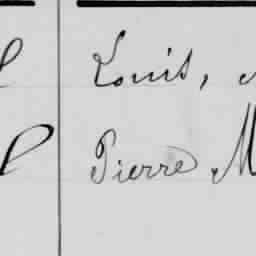 Louis,
Pierre M